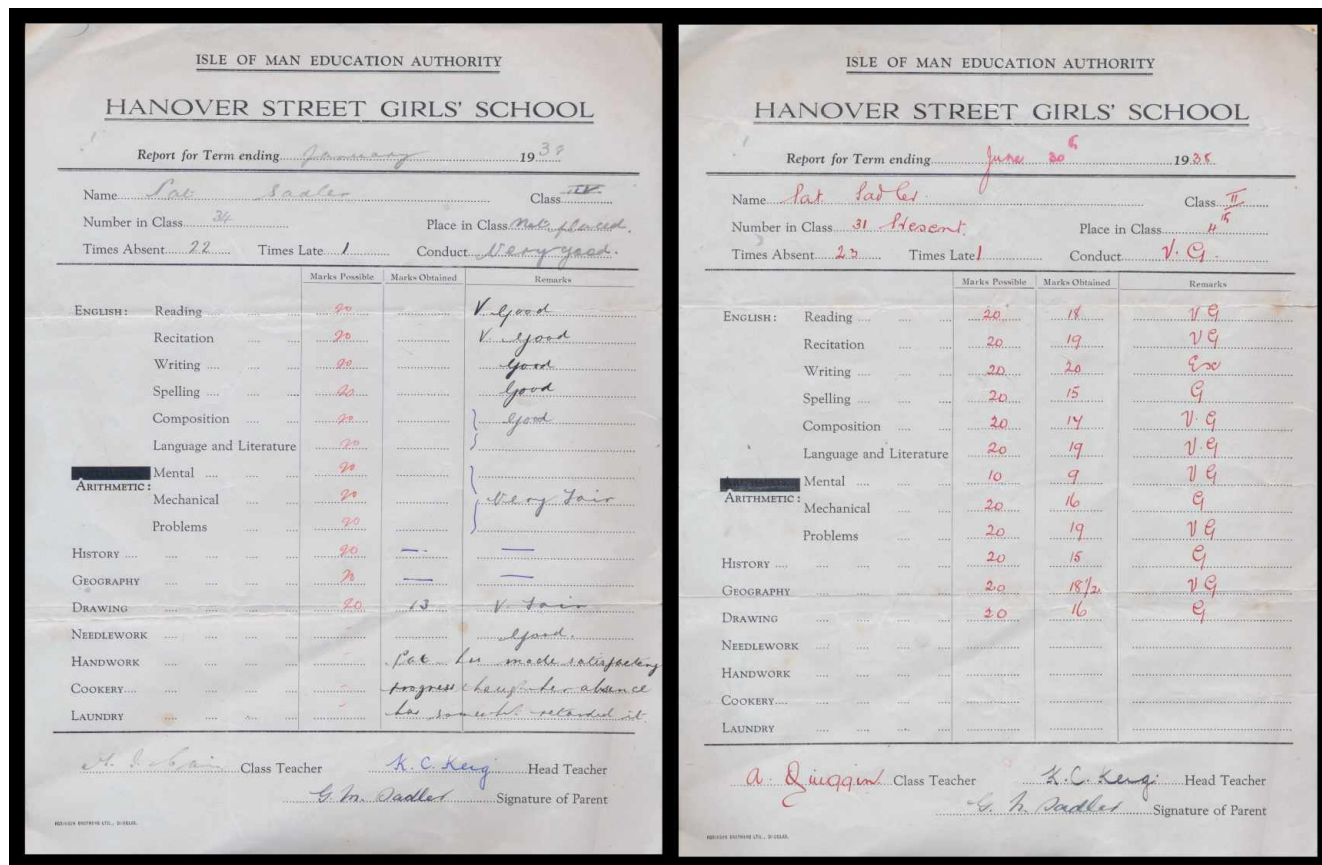 ISLE OF MAN EDUCATION AUTHORITY
HANOVER STREET GIRLS' SCHOOL
Report for Term ending January 1939
Name Pat Sadler Class IV
Number in Class 34 Place in Class Not placed.
Times Absent 22 Times Late 1 Conduct Very good.
Marks Possible Marks Obtained Remarks
ENGLISH: Reading 20 V. Good
Recitation 20 V. Good
Writing 20 Good
Spelling 20 Good
Composition 20 Good
Language and Literature 20
Mental 20
ARITHMETIC:
Mechanical 20 Very Fair
Problems 20
HISTORY 20 — —
GEOGRAPHY 20 — —
DRAWING 20 13 V. Fair
NEEDLEWORK Good.
HANDWORK Pat has made satisfactory
COOKERY progress though her absence
LAUNDRY has somewht. retarded it.
Cain Class Teacher K. C. Keig Head Teacher
G. M. Sadler Signature of Parent
ROBINSON BROTHERS LTD., DOUGLAS.
ISLE OF MAN EDUCATION AUTHORITY
HANOVER STREET GIRLS' SCHOOL
Report for Term ending June 30th 1938
Name Pat Sadler. Class II
Number in Class 31 Present. Place in Class 4th
Times Absent 23 Times Late 1 Conduct V. G.
Marks Possible Marks Obtained Remarks
ENGLISH: Reading 20 18 V G
Recitation 20 19 V G
Writing 20 20 Exc
Spelling 20 15 G
Composition 20 17 V. G
Language and Literature 20 19 V. G
Mental 10 9 V G
ARITHMETIC:
Mechanical 20 16 G
Problems 20 19 V G
HISTORY 20 15 G
GEOGRAPHY 20 18½ V G
DRAWING 20 16 G
NEEDLEWORK
HANDWORK
COOKERY
LAUNDRY
A. Quiggin Class Teacher K. C. Keig Head Teacher
G. M. Sadler Signature of Parent
ROBINSON BROTHERS LTD., DOUGLAS.